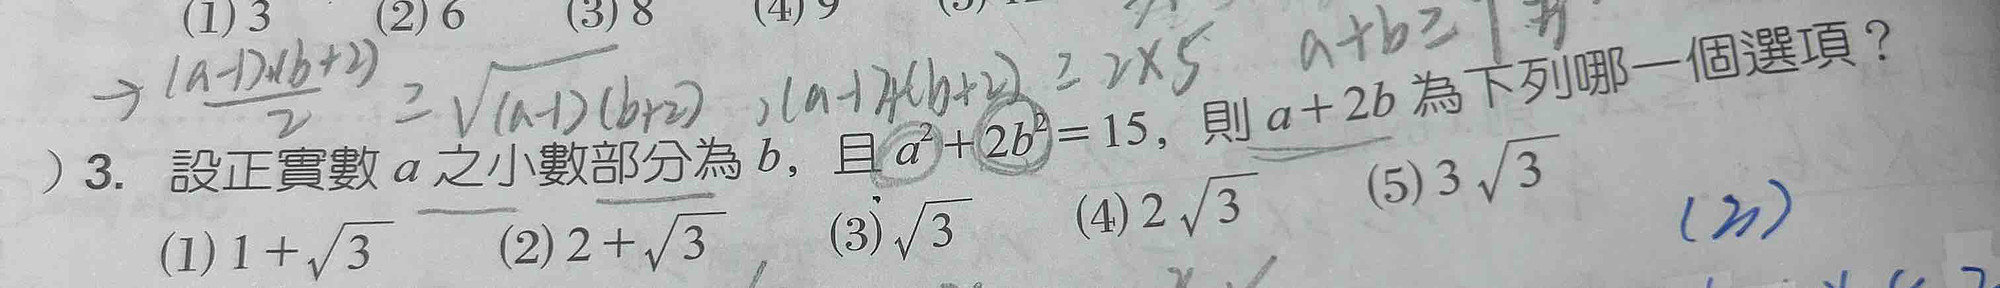 (1) 3 (2) 6 (3) 8 (4) 9
→ (a-1)+(b+2)/2 ≥ √(a-1)(b+2) , (a-1)+(b+2) ≥ 2×5 a+b≥
) 3. 設正實數 a 之小數部分為 b，且 a²+2b²=15，則 a+2b 為下列哪一個選項？
(1) 1+√3 (2) 2+√3 (3) √3 (4) 2√3 (5) 3√3